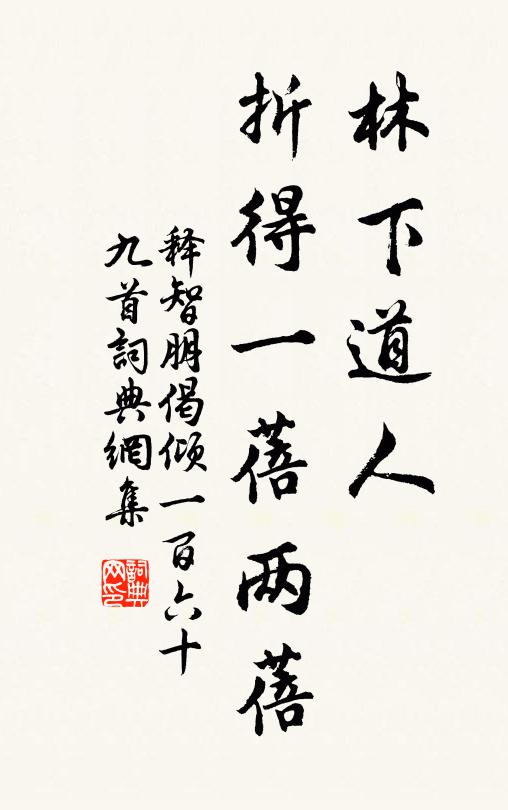 林下道人
折得一蓓两蓓
释智朋偈倾一百六十
九首詞典網集
詞典网印